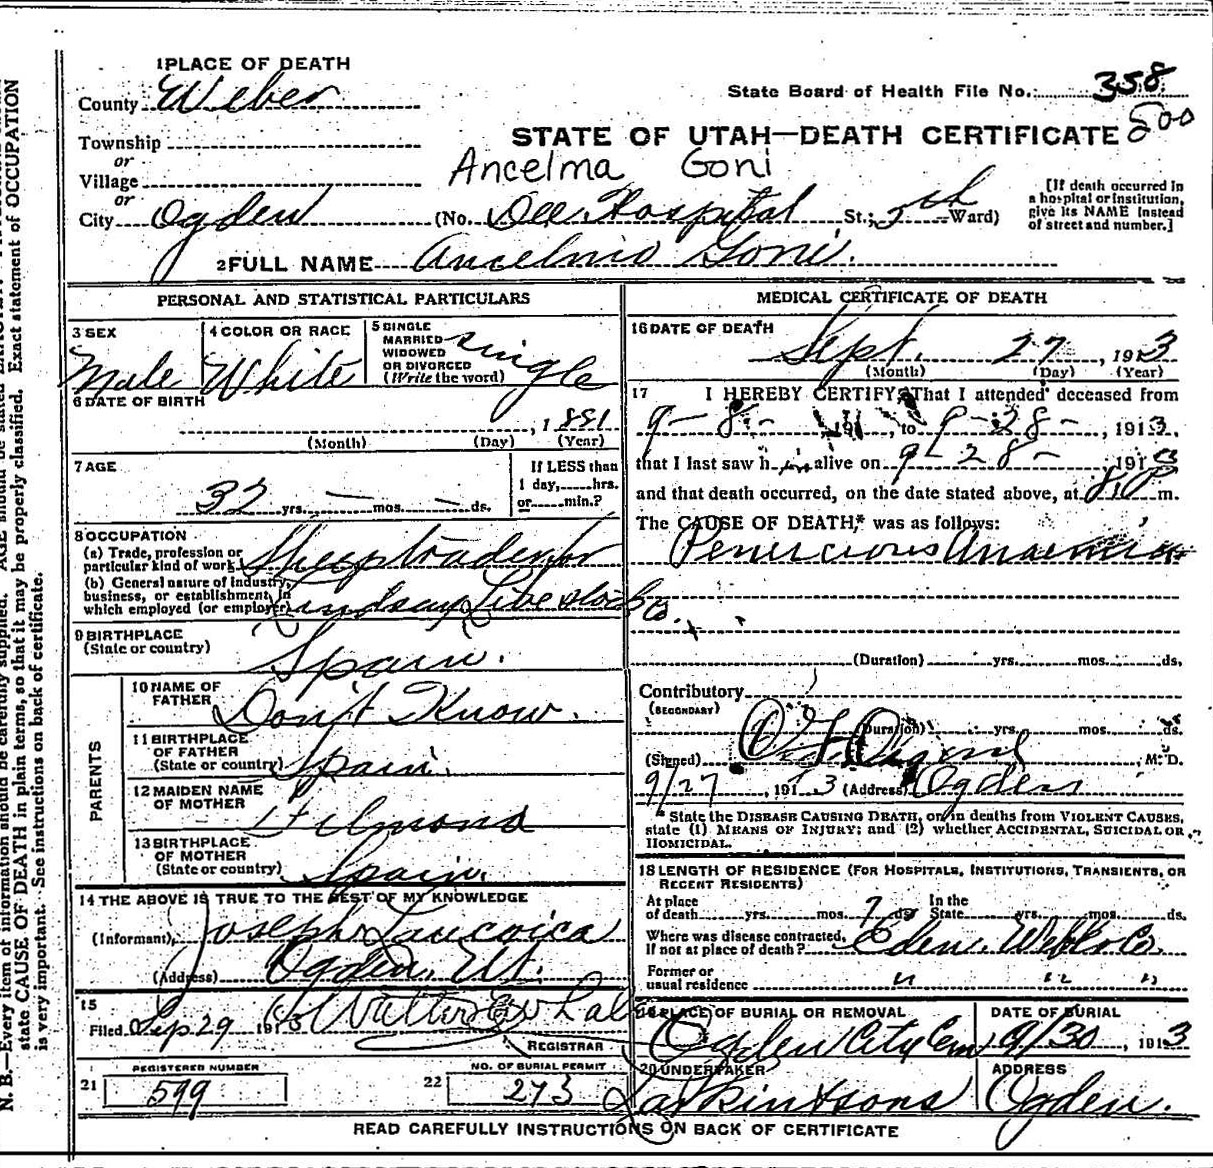 1 PLACE OF DEATH
County Weber
State Board of Health File No. 358
500
Township
or
STATE OF UTAH—DEATH CERTIFICATE
Village
Ancelma Goni
or
City Ogden (No. Dee Hospital St.; 5th Ward)
[If death occurred in
a hospital or institution,
give its NAME instead
of street and number.]
2 FULL NAME Ancelmo Goni.
PERSONAL AND STATISTICAL PARTICULARS
3 SEX
Male
4 COLOR OR RACE
White
5 SINGLE
MARRIED
WIDOWED
OR DIVORCED
(Write the word)
single
6 DATE OF BIRTH
, 1881
(Month) (Day) (Year)
7 AGE
32 yrs. — mos. — ds.
If LESS than
1 day, hrs.
or min.?
8 OCCUPATION
(a) Trade, profession or
particular kind of work
(b) General nature of industry,
business, or establishment in
which employed (or employer)
Lindsay Livestock Co.
9 BIRTHPLACE
(State or country)
Spain.
PARENTS
10 NAME OF
FATHER
Don't Know.
11 BIRTHPLACE
OF FATHER
(State or country)
Spain.
12 MAIDEN NAME
OF MOTHER
Filmona
13 BIRTHPLACE
OF MOTHER
(State or country)
Spain.
14 THE ABOVE IS TRUE TO THE BEST OF MY KNOWLEDGE
(Informant) Joseph
(Address) Ogden, Ut.
15
Filed Sep 29 1913
REGISTRAR
21
REGISTERED NUMBER
599
22
NO. OF BURIAL PERMIT
273
MEDICAL CERTIFICATE OF DEATH
16 DATE OF DEATH
Sept. 27, 1913
(Month) (Day) (Year)
17 I HEREBY CERTIFY, That I attended deceased from
9-8- 191 , to 9-28-, 1913.
that I last saw him alive on 9-28-, 1913
and that death occurred, on the date stated above, at 8 10 P m.
The CAUSE OF DEATH,* was as follows:
Penercious Anaemia
(Duration) yrs. mos. ds.
Contributory
(SECONDARY)
(Duration) yrs. mos. ds.
(Signed) M. D.
9/27, 1913 (Address) Ogden
* State the DISEASE CAUSING DEATH, or, in deaths from VIOLENT CAUSES,
state (1) MEANS OF INJURY; and (2) whether ACCIDENTAL, SUICIDAL OR
HOMICIDAL.
18 LENGTH OF RESIDENCE (FOR HOSPITALS, INSTITUTIONS, TRANSIENTS, OR
RECENT RESIDENTS)
At place
of death yrs. mos. 7 ds.
In the
State yrs. mos. ds.
Where was disease contracted,
If not at place of death? Eden, Weber Co.
Former or
usual residence " " "
19 PLACE OF BURIAL OR REMOVAL
Ogden City Cem
DATE OF BURIAL
9/30, 1913
20 UNDERTAKER
Larkin & Sons
ADDRESS
Ogden.
READ CAREFULLY INSTRUCTIONS ON BACK OF CERTIFICATE
N. B.—Every item of information should be carefully supplied. AGE should be stated
state CAUSE OF DEATH in plain terms, so that it may be properly classified. Exact statement of OCCUPATION
is very important. See instructions on back of certificate.